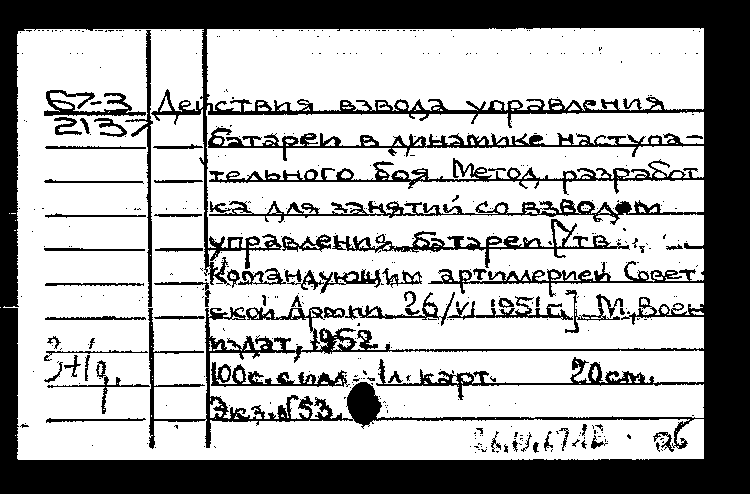 67-3 Действия взвода управления
2137
батареи в динамике наступа-
тельного боя. Метод. разработ
ка для занятий со взводом
управления батареи. [Утв.
Командующим артиллерией Совет-
ской Армии 26/VI 1951г.] М., Воен
издат, 1952.
100с. с илл. 1л. карт. 20см.
Экз. №53.
26.IV.67